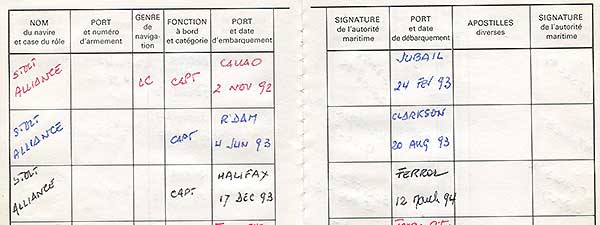 NOM
du navire
et case du rôle
PORT
et numéro
d'armement
GENRE
de
naviga-
tion
FONCTION
à bord
et catégorie
PORT
et date
d'embarquement
SIGNATURE
de l'autorité
maritime
PORT
et date
de débarquement
APOSTILLES
diverses
SIGNATURE
de l'autorité
maritime
STOLT
ALLIANCE
LC
CAPT
CALLAO
2 NOV 92
JUBAIL
24 FEV 93
STOLT
ALLIANCE
CAPT
R'DAM
4 JUN 93
CLARKSON
20 AUG 93
STOLT
ALLIANCE
CAPT
HALIFAX
17 DEC 93
FERROL
12 March 94